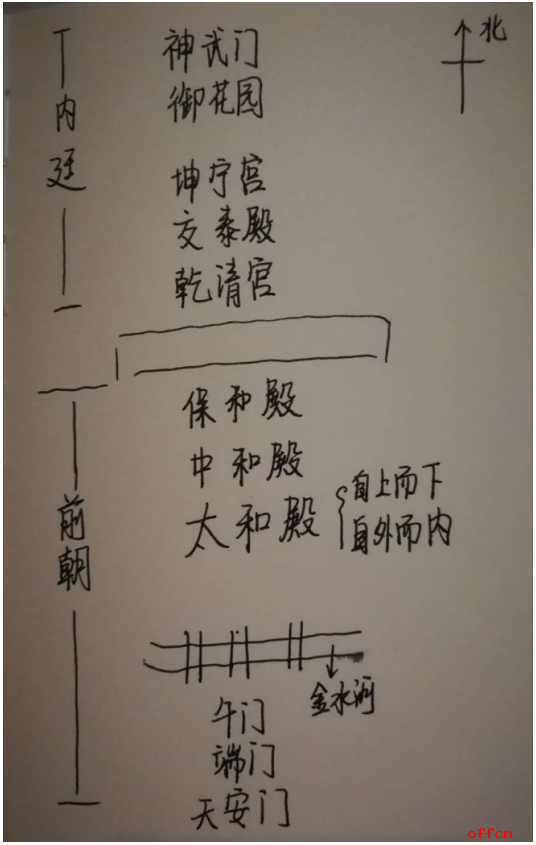 北
神武门
御花园
内廷
坤宁宫
交泰殿
乾清宫
保和殿
中和殿
太和殿
自上而下
自外而内
前朝
金水河
午门
端门
天安门
offcn